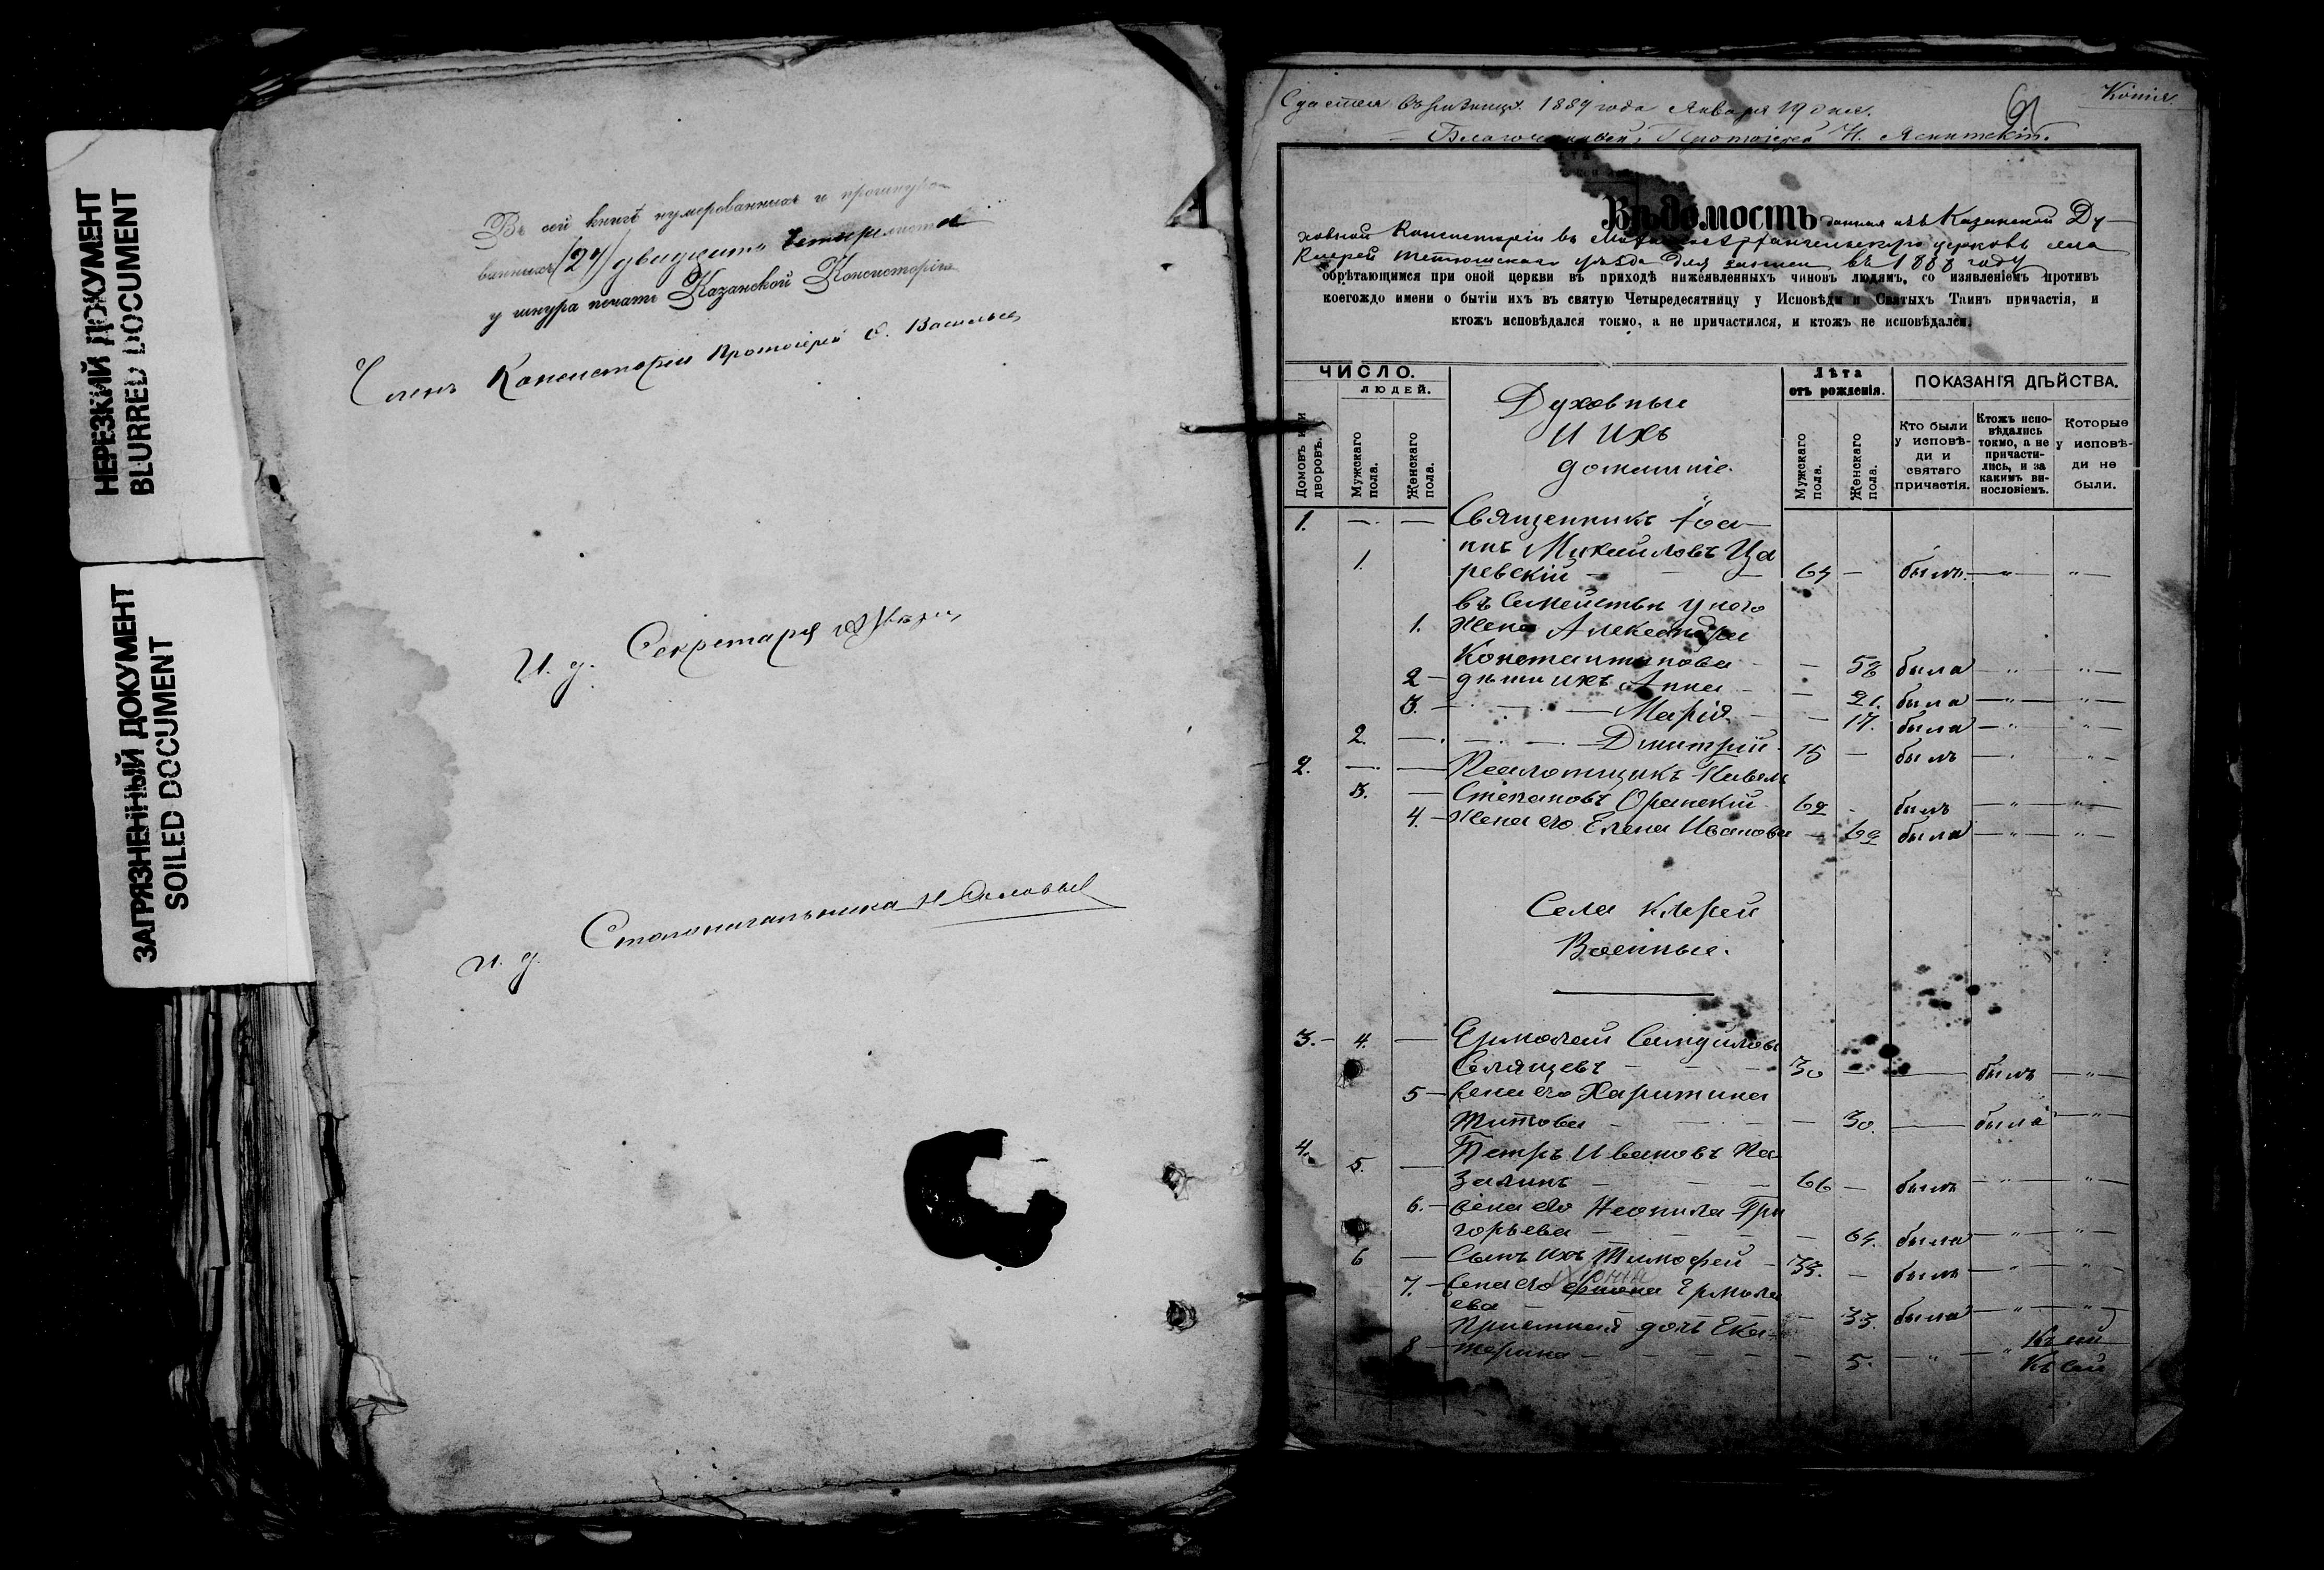 НЕРЕЗКИЙ ДОКУМЕНТ
BLURRED DOCUMENT
ЗАГРЯЗНЕННЫЙ ДОКУМЕНТ
SOILED DOCUMENT
Въ сей книгѣ нумерованныхъ и прошнуро-
ванныхъ /24/ двадцать четыре листа
у шнура печать Казанской Консисторіи
Членъ Консисторіи Протоіерей
И. д. Секретаря
И. д. Столоначальника
1889 года Января 19 дня.
Копія.
Благочинный, Протоіерей Н.
Вѣдомость данная изъ Казанской Ду-
ховной Консисторіи въ церковь села
Тетюшскаго уѣзда для записи въ 1888 году
обрѣтающимся при оной церкви въ приходѣ нижеявленныхъ чиновъ людямъ, со изявленіемъ противъ
коегождо имени о бытіи ихъ въ святую Четыредесятницу у Исповѣди и Святыхъ Таинъ причастія, и
ктожъ исповѣдался токмо, а не причастился, и ктожъ не исповѣдался.
ЧИСЛО.
ЛЮДЕЙ.
Домовъ или дворовъ.
Мужскаго пола.
Женскаго пола.
Духовные
и ихъ
домашніе.
Лѣта
отъ рожденія.
Мужскаго пола.
Женскаго пола.
ПОКАЗАНІЯ ДѢЙСТВА.
Кто были
у исповѣ-
ди и
святаго
причастія.
Ктожъ испо-
вѣдались
токмо, а не
причасти-
лись, и за
какимъ ви-
нословіемъ.
Которые
у исповѣ-
ди не
были.
1. — — Священникъ Іоа-
1. ннъ Михаиловъ Ца
ревскій — 64 — былъ — " — " —
въ семействѣ у него
1. жена Александра
Константинова — 58 была — " — " —
2 — дѣти ихъ Анна — — 21. была — " — " —
3. — Марія — — 17. была — " — " —
2. — Дмитрій 15 — былъ — " — " —
2. — — Псаломщикъ Павелъ
3. — Степановъ Оранскій 62 — былъ — " — " —
4. — Жена его Елена Иванова — 62 была — " — " —
Села Кирей
Военные.
3. — 4. — Ермолай Самуиловъ
— 30 — — былъ — " —
5 — жена его Харитина
Титова — — 30. — была — " —
4. 5. — Петръ Ивановъ Ка
залинъ — 66 — былъ — " — " —
6. — жена его Неонила Гри
горьева — — 64. была — " — " —
6 — Сынъ ихъ Тимофей — 33. — былъ — " — " —
7. — жена его Ермола
ева — — 33. была — " — " —
Пріемная дочь Ека-
8 — терина — — 5. — " — "